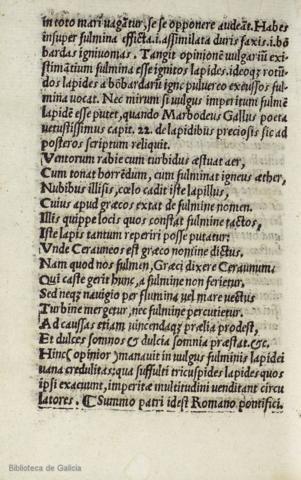 in toto mari vagãtur, se se opponere audeãt. Habes
insuper fulmina efficta.i.assimilata duris saxis.i.bõ
bardas igniuomas. Tangit opinionẽ vulgariũ exi-
stimãtium fulmina esse ignitos lapides. ideoq; rotũ-
dos lapides a bõbardariũ igne pulvereo excussos ful-
mina vocat. Nec mirum si vulgus imperitum fulmẽ
lapidẽ esse putet, quando Marbodeus Gallus poeta
vetustissimus capit. 22. de lapidibus preciosis sic ad
posteros scriptum reliquit.
Ventorum rabie cum turbidus æstuat aer,
Cum tonat horrẽdum, cum fulminat igneus æther,
Nubibus illisis, cœlo cadit iste lapillus,
Cuius apud græcos extat de fulmine nomen.
Illis quippe locis quos constat fulmine tactos,
Iste lapis tantum reperiri posse putatur:
Vnde Cerauneos est græco nomine dictus,
Nam quod nos fulmen, Græci dixere Ceraunum.
Qui caste gerit hunc, a fulmine non ferietur,
Sed neq; nauigio per flumina vel mare vectus
Turbine mergetur, nec fulmine percutietur.
Ad caussas etiam uincendaq; prælia prodest,
Et dulces somnos & dulcia somnia præstat.&c.
Hinc (opinor) manauit in vulgus fulminis lapidei
uana credulitas: qua suffulti tricuspides lapides quos
ipsi exacuunt, imperitæ multitudini venditant circu
latores. ¶ Summo patri idest Romano pontifici.
Biblioteca de Galicia